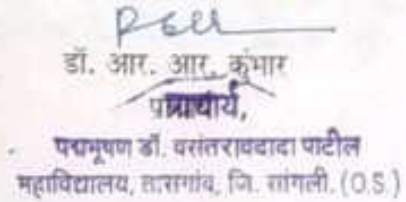 डॉ. आर. आर. कुंभार
प्राचार्य,
पद्मभूषण डॉ. वसंतरावदादा पाटील
महाविद्यालय, तासगांव, जि. सांगली. (O.S.)